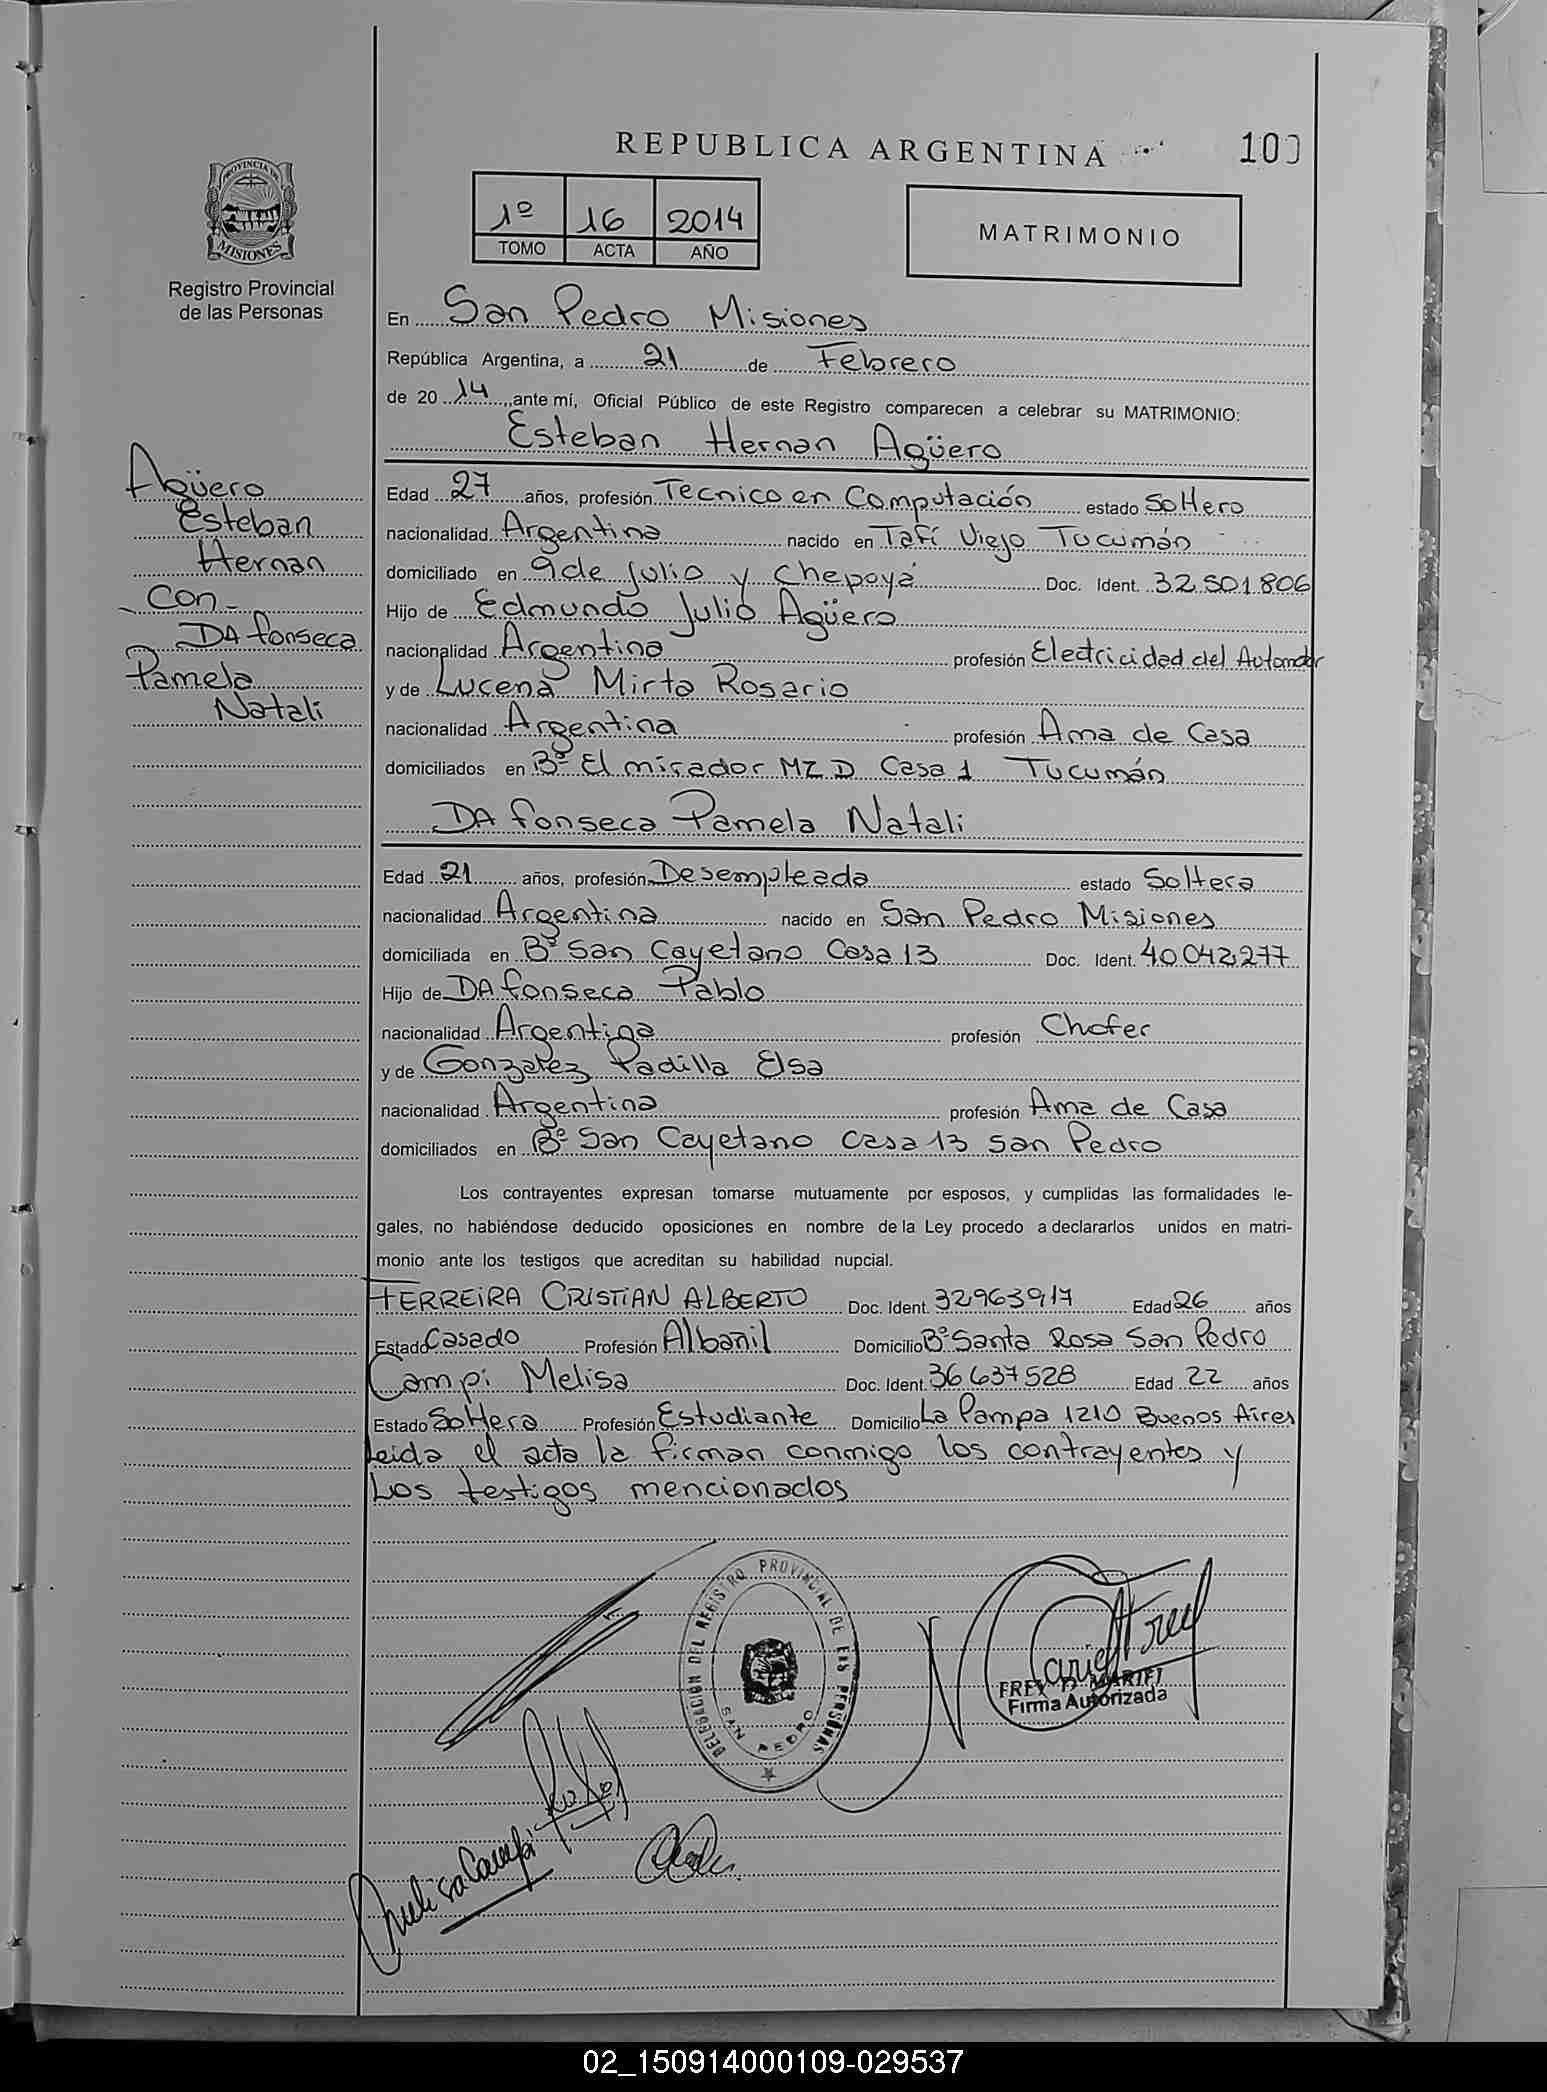 REPUBLICA ARGENTINA
100
PROVINCIA DE
MISIONES
Registro Provincial
de las Personas
1º 16 2014
TOMO ACTA AÑO
MATRIMONIO
En San Pedro Misiones
República Argentina, a 21 de Febrero
de 2014, ante mí, Oficial Público de este Registro comparecen a celebrar su MATRIMONIO:
Esteban Hernan Agüero
Agüero
Esteban
Hernan
Con
DA fonseca
Pamela
Natali
Edad 27 años, profesión Tecnico en Computación estado Soltero
nacionalidad Argentina nacido en Tafí Viejo Tucumán
domiciliado en 9 de Julio y Chepoyá Doc. Ident. 32.501.806
Hijo de Edmundo Julio Agüero
nacionalidad Argentina profesión Electricidad del Automotor
y de Lucena Mirta Rosario
nacionalidad Argentina profesión Ama de Casa
domiciliados en Bº El mirador MZ D Casa 1 Tucumán
DA fonseca Pamela Natali
Edad 21 años, profesión Desempleada estado Soltera
nacionalidad Argentina nacido en San Pedro Misiones
domiciliada en Bº San Cayetano Casa 13 Doc. Ident. 40.042.277
Hijo de DA fonseca Pablo
nacionalidad Argentina profesión Chofer
y de Gonzalez Padilla Elsa
nacionalidad Argentina profesión Ama de Casa
domiciliados en Bº San Cayetano casa 13 San Pedro
Los contrayentes expresan tomarse mutuamente por esposos, y cumplidas las formalidades le-
gales, no habiéndose deducido oposiciones en nombre de la Ley procedo a declararlos unidos en matri-
monio ante los testigos que acreditan su habilidad nupcial.
FERREIRA CRISTIAN ALBERTO Doc. Ident. 32963917 Edad 26 años
Estado Casado Profesión Albanil Domicilio Bº Santa Rosa San Pedro
Campi Melisa Doc. Ident. 36 637 528 Edad 22 años
Estado Soltera Profesión Estudiante Domicilio La Pampa 1210 Buenos Aires
Leida el acta la firman conmigo los contrayentes y
Los testigos mencionados
DELEGACIÓN DEL REGISTRO PROVINCIAL DE LAS PERSONAS
SAN PEDRO
FREY D. MARIEL
Firma Autorizada
Melisa Campi
02_150914000109-029537